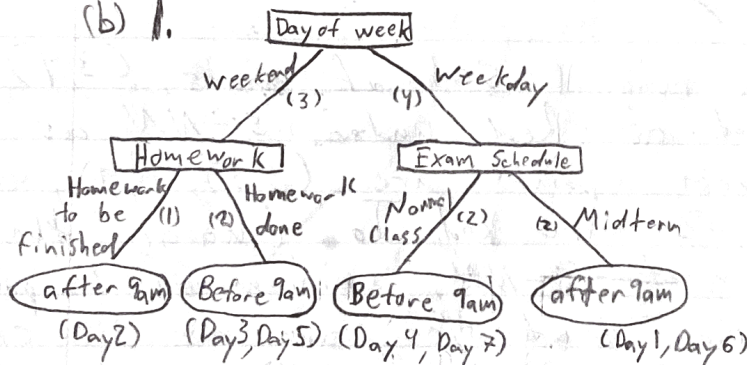 (b) 1.
Day of week
Weekend (3) (4) Weekday
Homework Exam Schedule
Homework to be finished (1) (2) Homework done Normal Class (2) (2) Midterm
after 9am Before 9am Before 9am after 9am
(Day2) (Day3, Day5) (Day4, Day7) (Day1, Day6)